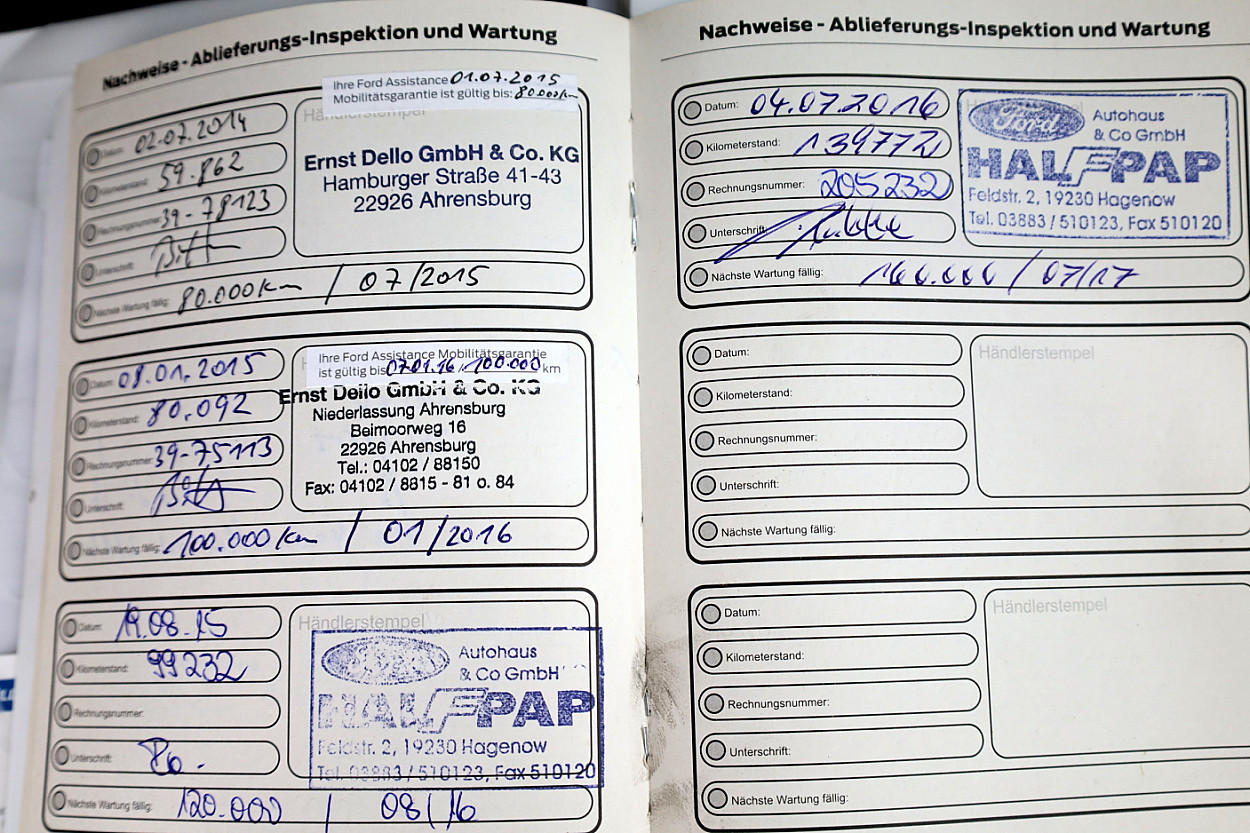 Nachweise - Ablieferungs-Inspektion und Wartung
Ihre Ford Assistance 01.07.2015
Mobilitätsgarantie ist gültig bis: 80.000km
Händlerstempel
Datum: 02.07.2014
Kilometerstand: 59.862
Rechnungsnummer: 39-78123
Unterschrift:
Ernst Dello GmbH & Co. KG
Hamburger Straße 41-43
22926 Ahrensburg
Nächste Wartung fällig: 80.000km / 07/2015
Ihre Ford Assistance Mobilitätsgarantie
ist gültig bis 07.01.16 / 100.000 km
Datum: 08.01.2015
Kilometerstand: 80.092
Rechnungsnummer: 39-75113
Unterschrift:
Ernst Dello GmbH & Co. KG
Niederlassung Ahrensburg
Beimoorweg 16
22926 Ahrensburg
Tel.: 04102 / 88150
Fax: 04102 / 8815 - 81 o. 84
Nächste Wartung fällig: 100.000 km / 01/2016
Datum: 19.08.15
Kilometerstand: 99232
Rechnungsnummer:
Unterschrift:
Händlerstempel
Ford
Autohaus
& Co GmbH
HALFPAP
Feldstr. 2, 19230 Hagenow
Tel. 03883 / 510123, Fax 510120
Nächste Wartung fällig: 120.000 / 08/16
Nachweise - Ablieferungs-Inspektion und Wartung
Datum: 04.07.2016
Kilometerstand: 139772
Rechnungsnummer: 205232
Unterschrift:
Händlerstempel
Ford
Autohaus
& Co GmbH
HALFPAP
Feldstr. 2, 19230 Hagenow
Tel. 03883 / 510123, Fax 510120
Nächste Wartung fällig: 160.000 / 07/17
Datum:
Kilometerstand:
Rechnungsnummer:
Unterschrift:
Händlerstempel
Nächste Wartung fällig:
Datum:
Kilometerstand:
Rechnungsnummer:
Unterschrift:
Händlerstempel
Nächste Wartung fällig: